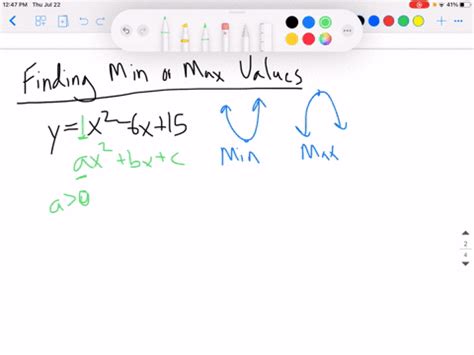 12:47 PM Thu Jul 22
41%
Finding Min or Max Values
y=1x²-6x+15
ax²+bx+c
Min
Max
a>0
2
4